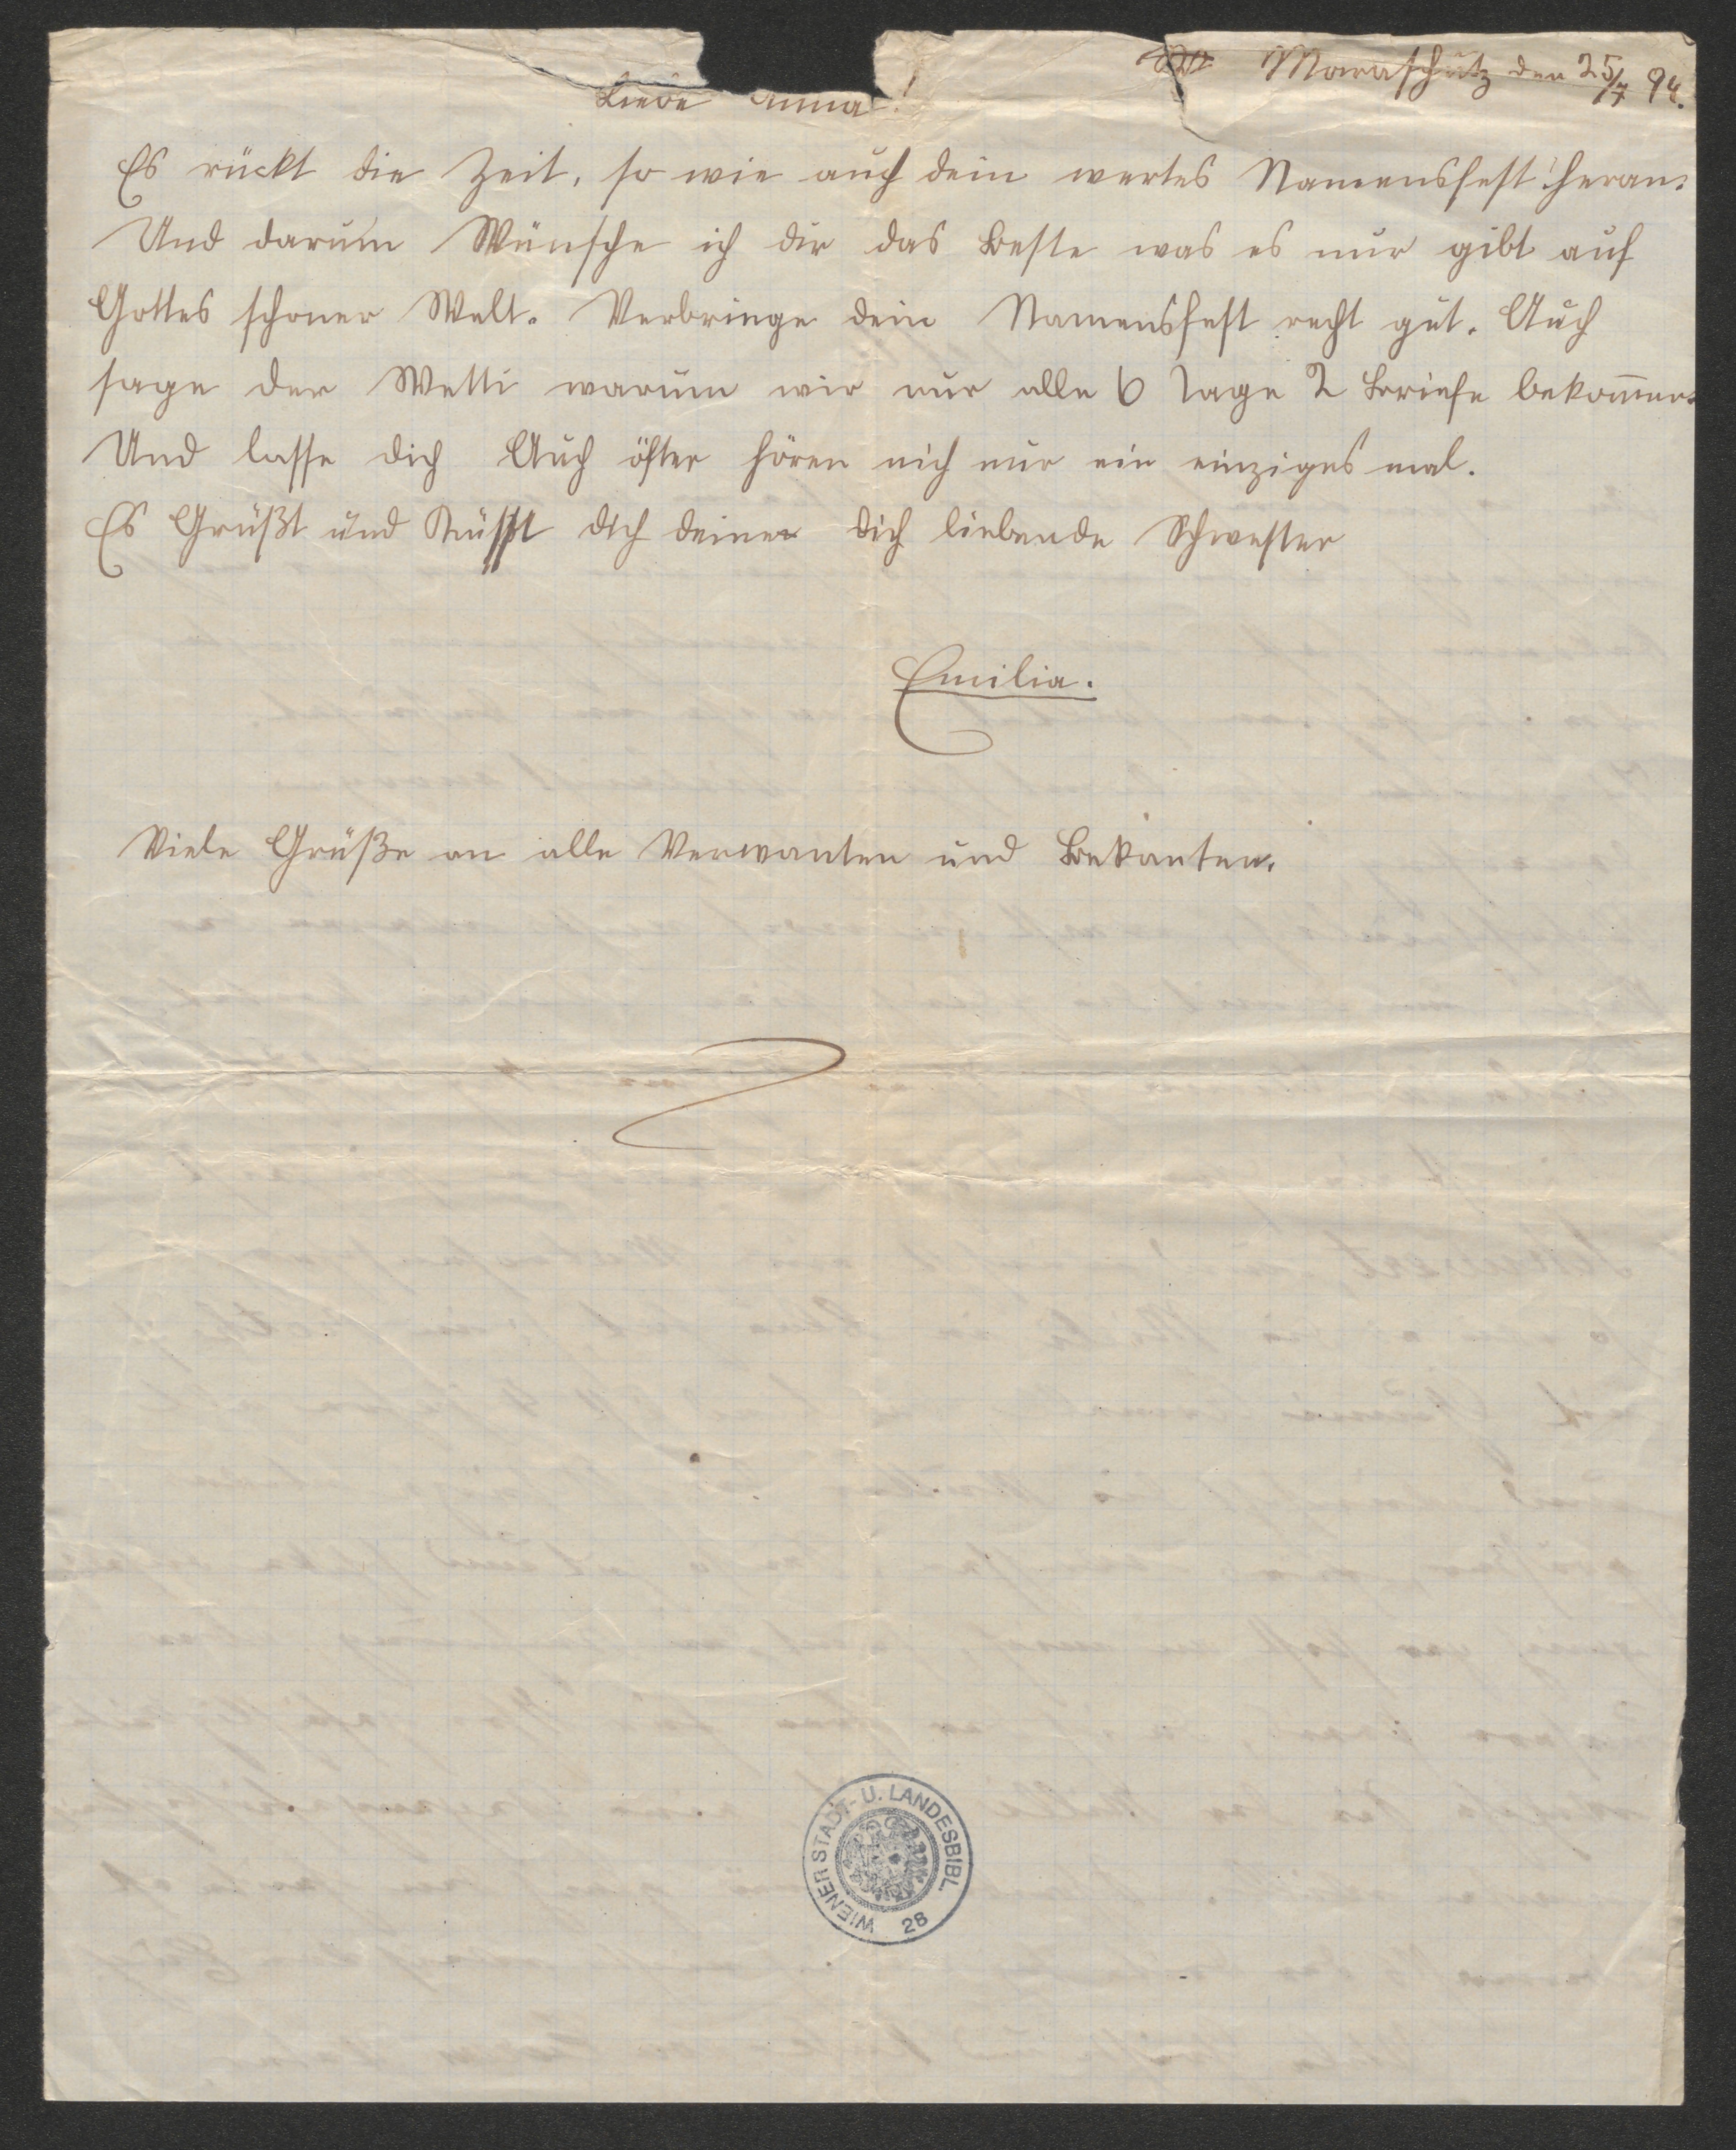 Moraschütz den 25/7 94.
Liebe Anna!
Es rückt die Zeit, so wie auch dein wertes Namensfest heran.
Und darum Wünsche ich dir das Beste was es nur gibt auf
Gottes schoner Welt. Verbringe dein Namensfest recht gut. Auch
sage der Wetti warum wir nur alle 6 Tage 2 Briefe bekom̅en.
Und lasse dich Auch öfter hören nich nur ein einziges mal.
Es Grüßt und Küsst dich deine dich liebende Schwester
Emilia.
Viele Grüße an alle Verwanten und Bekanten.
WIENER STADT- U. LANDESBIBL. 28